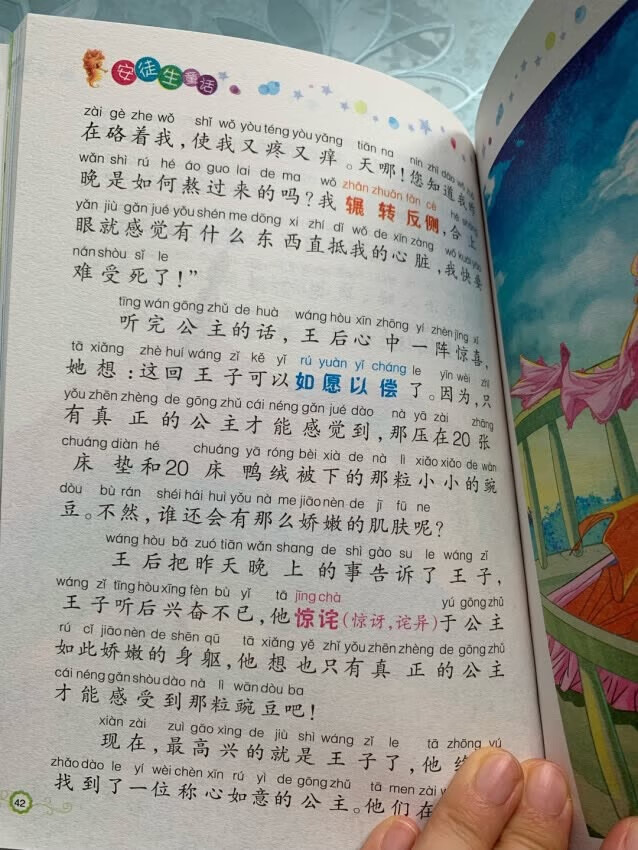 安徒生童话
zài gè zhe wǒ shǐ wǒ yòu téng yòu yǎng tiān na nín zhī dào
在硌着我,使我又疼又痒。天哪!您知道我昨
wǎn shì rú hé áo guo lai de ma wǒ zhǎn zhuǎn fǎn cè hé shàng
晚是如何熬过来的吗?我辗转反侧,合上
yǎn jiù gǎn jué yǒu shén me dōng xi zhí dǐ wǒ de xīn zàng wǒ kuài yào
眼就感觉有什么东西直抵我的心脏,我快要
nán shòu sǐ le
难受死了!”
tīng wán gōng zhǔ de huà wáng hòu xīn zhōng yí zhèn jīng xǐ
听完公主的话,王后心中一阵惊喜,
tā xiǎng zhè huí wáng zǐ kě yǐ rú yuàn yǐ cháng le yīn wèi zhǐ
她想:这回王子可以如愿以偿了。因为,只
yǒu zhēn zhèng de gōng zhǔ cái néng gǎn jué dào nà yā zài zhāng
有真正的公主才能感觉到,那压在20张
chuáng diàn hé chuáng yā róng bèi xià de nà lì xiǎo xiǎo de wān
床垫和20床鸭绒被下的那粒小小的豌
dòu bù rán shéi hái huì yǒu nà me jiāo nèn de jī fū ne
豆。不然,谁还会有那么娇嫩的肌肤呢?
wáng hòu bǎ zuó tiān wǎn shang de shì gào su le wáng zǐ
王后把昨天晚上的事告诉了王子,
wáng zǐ tīng hòu xīng fèn bù yǐ tā jīng chà yú gōng zhǔ
王子听后兴奋不已,他惊诧(惊讶,诧异)于公主
rú cǐ jiāo nèn de shēn qū tā xiǎng yě zhǐ yǒu zhēn zhèng de gōng zhǔ
如此娇嫩的身躯,他想也只有真正的公主
cái néng gǎn shòu dào nà lì wān dòu ba
才能感受到那粒豌豆吧!
xiàn zài zuì gāo xìng de jiù shì wáng zǐ le tā zhōng yú
现在,最高兴的就是王子了,他终
zhǎo dào le yí wèi chèn xīn rú yì de gōng zhǔ tā men zài
找到了一位称心如意的公主。他们在
42